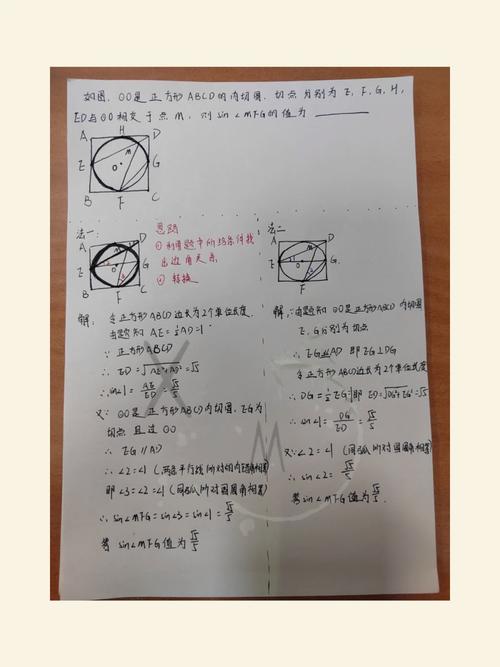 如图,⊙O是正方形ABCD的内切圆,切点分别为E,F,G,H,
ED与⊙O相交于点M,则sin∠MFG的值为 ______
A H D
M
E O G
B F C
法一:
A D
M
E O G
B F C
思路
①利用题中所给条件找
出边角关系
②转换
解:令正方形ABCD边长为2个单位长度.
由题意知 AE=½AD=1
∵ 正方形ABCD
∴ ED=√(AE²+AD²)=√5
∴ sin∠1=AE/ED=√5/5
又∵ ⊙O是正方形ABCD内切圆,EG为
切点且过⊙O
∴ EG∥AD
∴ ∠2=∠1(两条平行线所对的内错角相等)
即∠3=∠2=∠1(同弧所对圆周角相等)
∴ sin∠MFG=sin∠3=sin∠1=√5/5
答 sin∠MFG值为√5/5
法二
A D
M
E O G
B F C
解:∵由题意知 ⊙O是正方形ABCD内切圆
E,G分别为切点
∴ EG∥AD 即EG⊥DG
令正方形ABCD边长为2个单位长度
∴ DG=½EG=1即 ED=√(DG²+EG²)=√5
∴ sin∠1=DG/ED=√5/5
又∵∠2=∠1(同弧所对圆周角相等)
∴ sin∠2=√5/5
答 sin∠MFG值为√5/5.